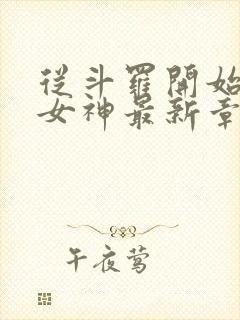 從斗羅開始
女神最新章
午夜莺